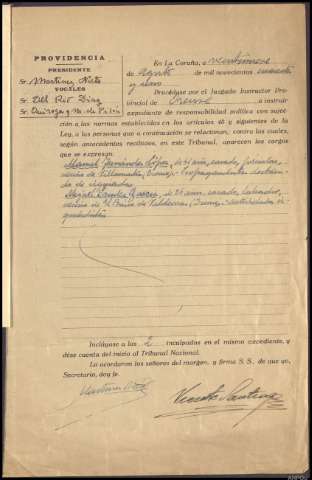 PROVIDENCIA
PRESIDENTE
Sr. Martínez Nieto
VOCALES
Sr. Del Río Díaz
Sr. Quiroga y
En La Coruña, a veintinueve
de Agosto de mil novecientos cuarenta
y uno
Procédase por el Juzgado Instructor Pro-
vincial de Orense a instruir
expediente de responsabilidad política con suje-
ción a las normas establecidas en los artículos 45 y siguientes de la
Ley, a las personas que a continuación se relacionan, contra las cuales,
según antecedentes recibidos, en este Tribunal, aparecen los cargos
que se expresan.
Manuel Fernández López, de años, casado, jornalero,
vecino de Villamartín, Orense.
de izquierdas
de años, casado, labrador,
vecino de Valdeorras, Orense.
izquierdista
Inclúyase a los 2 inculpados en el mismo expediente, y
dése cuenta del inicio al Tribunal Nacional.
Lo acordaron los señores del margen, y firma S. S. de que yo,
Secretario, doy fe.
Martínez Nieto
Vicente Santiago